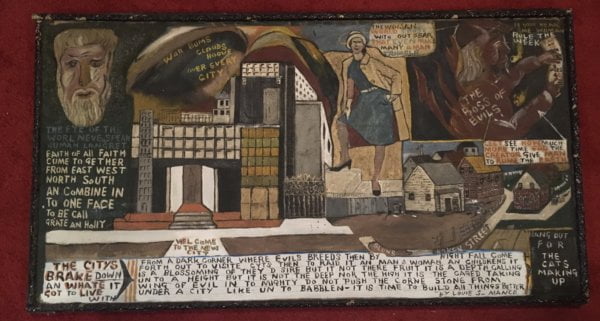 WAR BUMB
CLOUDS
HOOVE
OVER EVERY
CITY
THE WOMSEN
WITH OUT SEAR
MANY A MAN
RULE THE
WEEK
THE
BOSS OF
EVILS
SEE HOW MUCH
MORE TIME WILL THE
CREATOR GIVE MAN
THE EYE OF THE
WORL NEVE SPEAK
HUMAN LANGRET
FAITH OF All FAITH
COME TO GETHER
FROM EAST WEST
NORTH SOUTH
AN COMBINE IN
TO ONE FACE
TO BE CALL
GRATE AN HOllY
WEL COME
TO THE NEVE
STREET
HANG OUT
FOR
THE
CATS
MAKING
UP
THE CITYS
BRAKE DOWN
AN WHATE IT
GOT TO LIVE
WITH
FROM A DARK CORNER WHERE EVILS BREEDS THEN BY NIGHT FALL COME
FORTH OUT TO VISIT THE CITYS THEN TO RAID IT, AN MAN & WOMAN, AN CHILDRENS IT
IS A BLOSSOMING OF THEY D SIRE BUT IT NOT THERE FRUIT IT IS A DEPTH CALLING
UN TO A HEIGHT BUT IT IS NOT THY DEEP NOR THE HIGH IT IS THE CANSER TAKING
WING OF EVIL IN TO MIGHTY DO NOT PUSH THE CORNE STONE FROM
UNDER A CITY LIKE UN TO BABBLEN-IT IS TIME TO BUILD AN THINGS BETTER
BY LOUIS